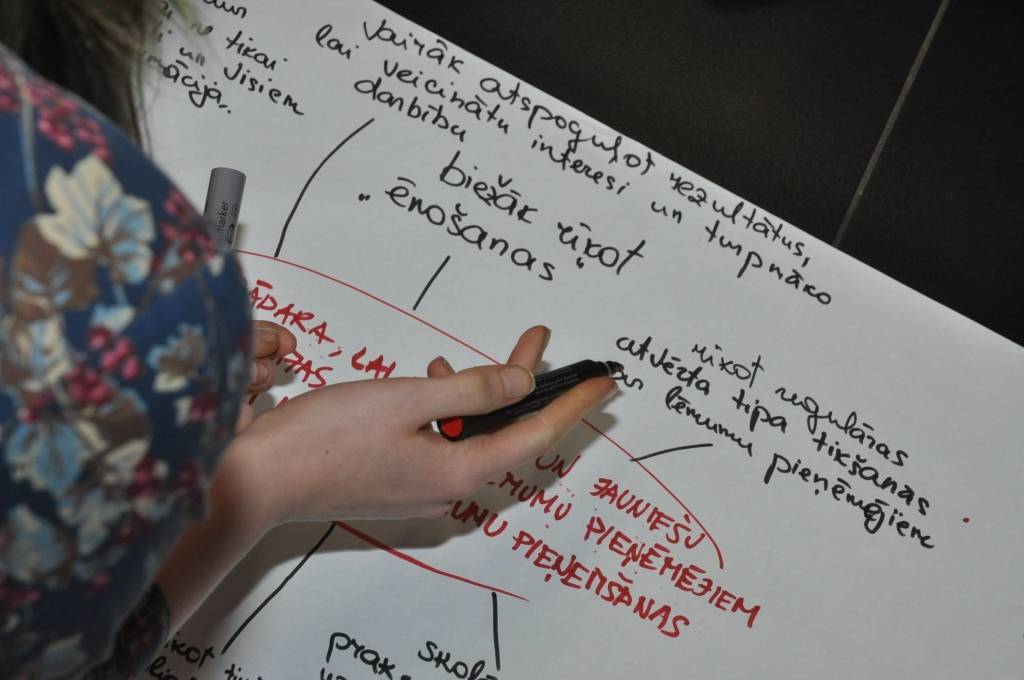 tikai
un visiem
Vairāk atspoguļot rezultātus,
lai veicinātu interesi un turpmāko
darbību
biežāk rīkot
"ēnošanas"
marker
ĀDARA, LAI
rīkot regulāras
atvērta tipa tikšanas
ar lēmumu pieņēmējiem
UN JAUNIEŠU
PIEŅĒMĒJIEM
PIEŅEMŠANAS
skol
prak